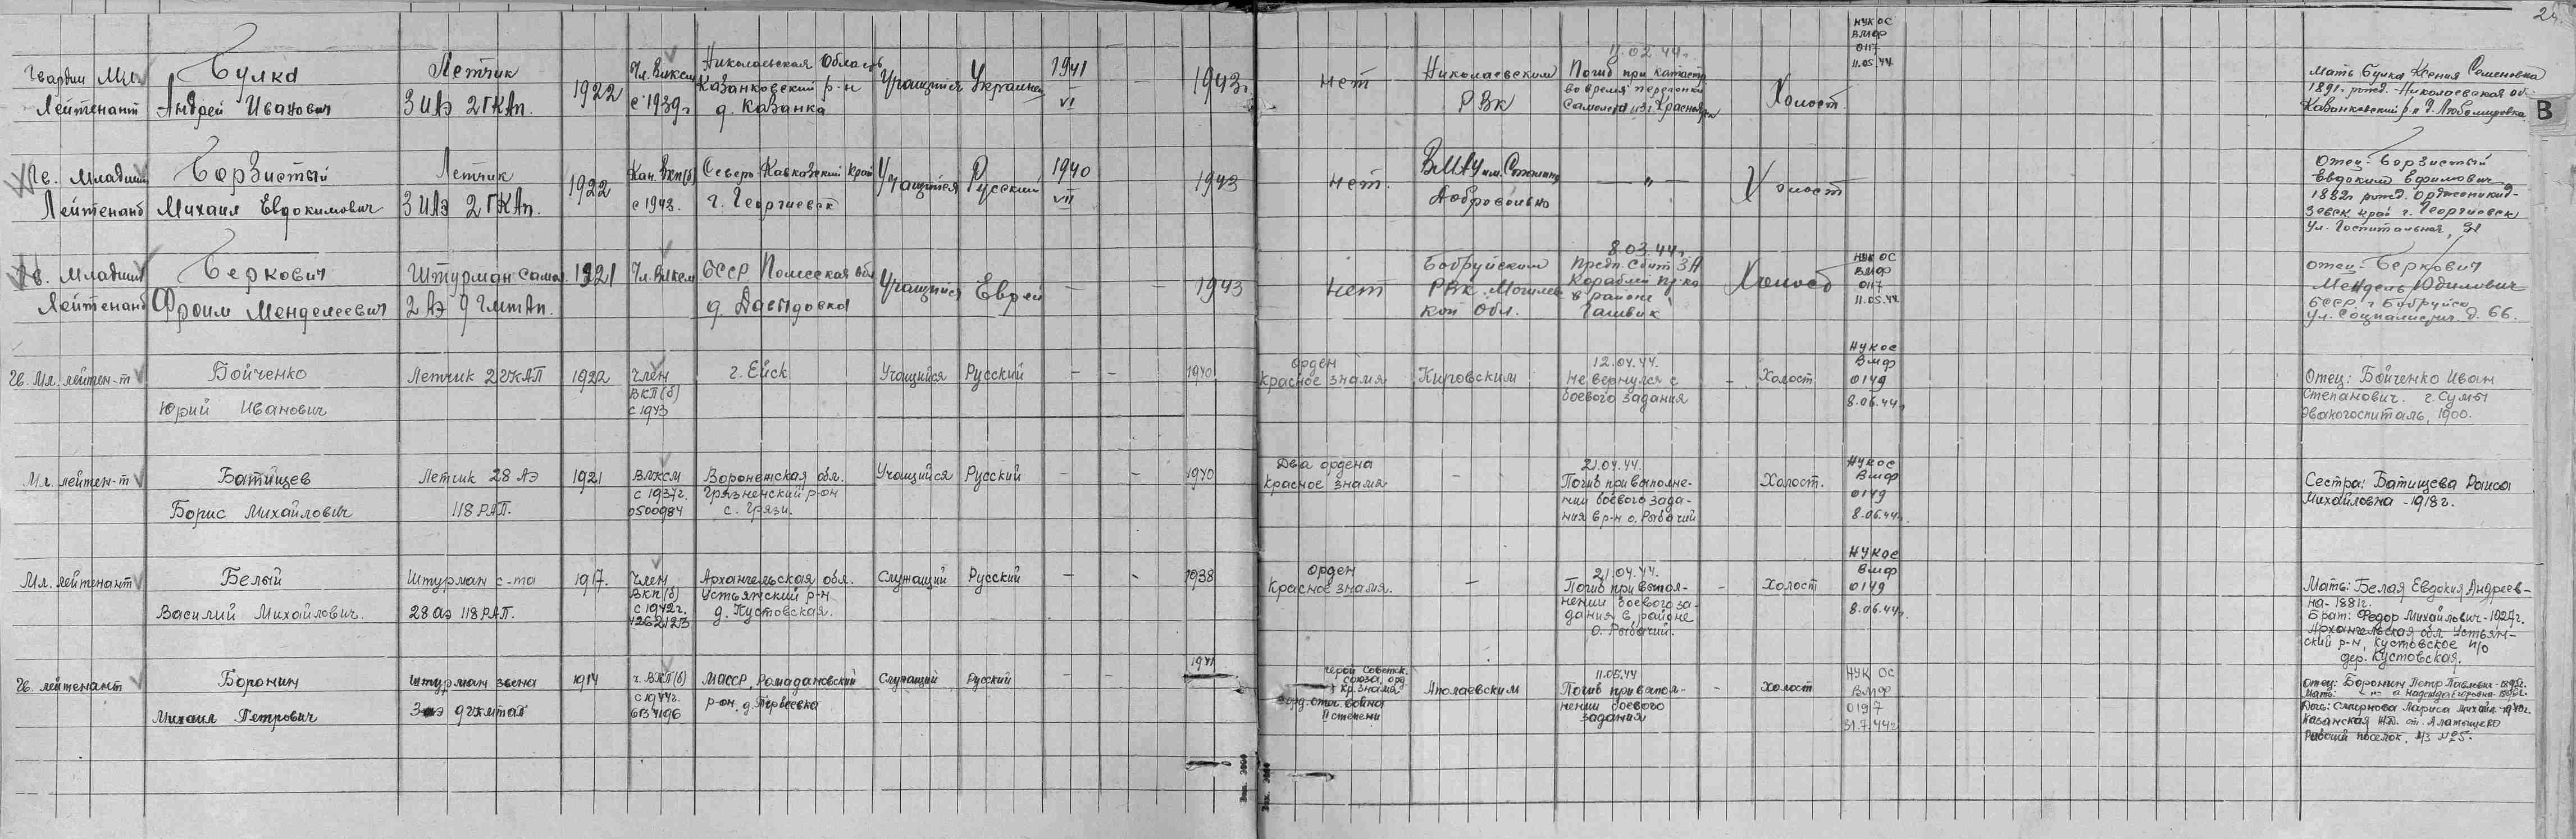 24
Гвардии Мл. Лейтенант
Булка
Андрей Иванович
Летчик
3 ИАЭ 2 ГКАп.
1922
Чл. Влксм
с 1939 г
Николаевская Область
Казанковский р-н
д. Казанка
Учащийся
Украинец
1941
VI
1943 г.
нет
Николаевским
РВК
11.02.44.
Погиб при катастр
во время перегонки
самолета из г. Красноярк
Холост
НУК ОС
ВМФ
0117
11.05.44
Мать Булка Ксения Семеновна
1891 г. рожд. Николаевская об.
Казанковский р-н д. Любомировка
В
Гв. Младший
Лейтенант
Борзистый
Михаил Евдокимович
Летчик
3 ИАЭ 2 ГКАп.
1922
Кан. Вкп(б)
с 1943.
Северо Кавказский край
г. Георгиевск
Учащийся
Русский
1940
VII
1943
нет.
ВМАУ им. Сталина
Добровольно
— " —
Холост
Отец - Борзистый
Евдоким Ефимович
1882 г рожд. Орджоникид-
зевск край г. Георгиевск
ул. Госпитальная,
Гв. Младший
Лейтенант
Беркович
Фроим Менделеевич
Штурман самол.
2 АЭ 9 ГМТАп.
1921
Чл. Влксм
БССР Полесская обл
д. Давыдовка
Учащийся
Еврей
—
—
1943
нет
Бобруйским
РВК Могилев
кой Обл.
8.03.44.
Предп. Сбит ЗА
Кораблей пр-ка
в районе
Гамвик
Холост
НУК ОС
ВМФ
0117
11.05.44.
Отец - Беркович
Мендель Юдилович
БССР, г Бобруйск
ул. Социалистич. д. 66.
Гв. Мл. лейтен-т
Бойченко
Юрий Иванович
Летчик 2 ГКАП
1922
Член
ВКП(б)
с 1943
г. Ейск
Учащийся
Русский
—
—
1940
орден
Красное знамя
Кировским
12.04.44.
Не вернулся с
боевого задания
—
Холост
НУКОС
ВМФ
0149
8.06.44 г.
Отец: Бойченко Иван
Степанович. г. Сумы
Эвакогоспиталь, 1900.
Мл. лейтен-т
Батищев
Борис Михайлович
Летчик 28 АЭ
118 РАП.
1921
ВЛКСМ
с 1937 г.
0500984
Воронежская обл.
Грязненский р-он
с. Грязи.
Учащийся
Русский
—
—
1940
Два ордена
Красное знамя
—
21.04.44.
Погиб при выполне-
нии боевого зада-
ния в р-н о. Рыбачий
Холост.
НУКОС
ВМФ
0149
8.06.44 г.
Сестра: Батищева Раиса
Михайловна - 1918 г.
Мл. лейтенант
Белый
Василий Михайлович.
Штурман с-та
28 АЭ 118 РАП.
1917.
Член
ВКП(б)
с 1942 г.
4262123
Архангельская обл.
Устьянский р-н
д. Кустовская.
Служащий
Русский
—
—
1938
орден
Красное знамя.
—
21.04.44.
Погиб при выпол-
нении боевого за-
дания в районе
о. Рыбачий.
—
Холост
НУКОС
ВМФ
0149
8.06.44 г.
Мать: Белая Евдокия Андреев-
на - 1881 г.
Брат: Федор Михайлович - 1927 г.
Архангельская обл. Устьян-
ский р-н, Кустовское п/о
дер. Кустовская.
Гв. лейтенант
Боронин
Михаил Петрович
штурман звена
3 АЭ 9 ГКМТАП
1914
ч. ВКП(б)
с 1944 г.
6134196
МАССР, Ромадановский
р-он, д.
Служащий
Русский
—
—
1941
Герой Советск.
союза, орд
Кр. знамя
орд. отеч. война
II степени
11.05.44
Погиб при выпол-
нении боевого
задания
—
Холост
НУК ОС
ВМФ
0197
31.7.44 г.
Отец: Боронин Петр Павлович
Мать: — " — а Надежда Егоровна
Дочь: Смирнова Лариса Михайл.
Казанская ж.д. ст.
Рабочий поселок, №5.
Зак. 3000
Зак. 3000